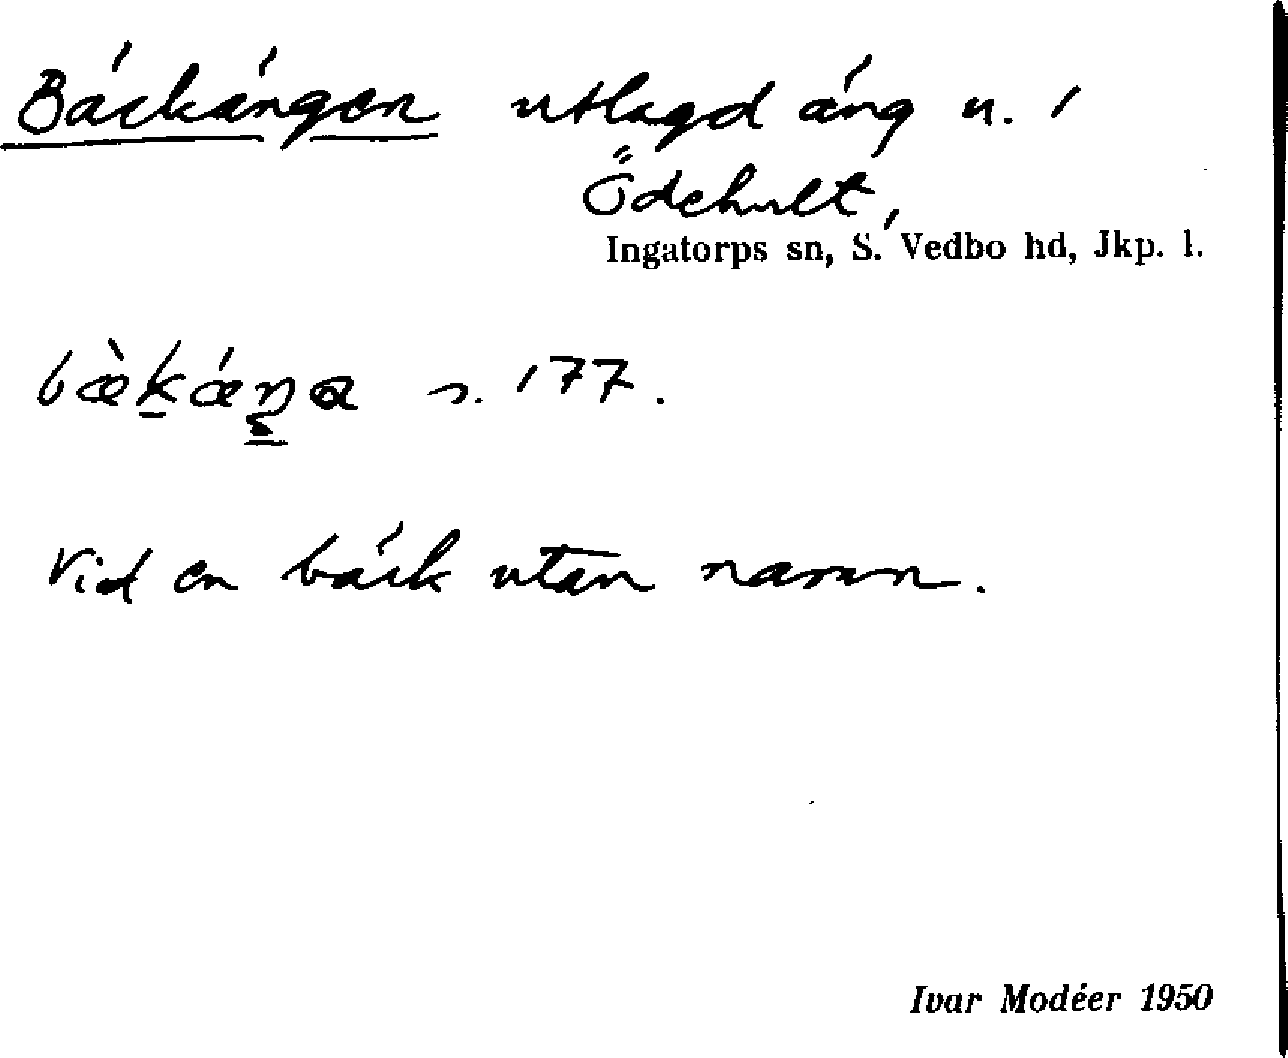 Bäckängen utlagd äng n. 1
Ödehult,
Ingatorps sn, S. Vedbo hd, Jkp. l.
bæ̀k̠ǽŋa s. 177.
Vid en bäck utan namn.
Ivar Modéer 1950